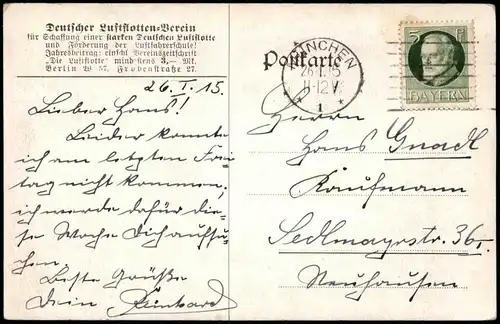 Deutscher Luftflotten-Verein
für Schaffung einer starken Deutschen Luftflotte
und Förderung der Luftfahrerschule!
Jahresbeitrag: einschl. Vereinszeitschrift
"Die Luftflotte" mindestens 3,— Mk.
Berlin W 57, Frobenstraße 27.
Postkarte
MÜNCHEN
26.1.15
11-12V.
* 1 *
5 PF
BAYERN
26.I.15.
Lieber Hans!
Leider konnte
ich am letzten Frei
tag nicht kommen,
ich werde dafür die-
se Woche Dich aufsu-
chen.
Beste Grüße
Dein Reinhard
Herrn
Hans Gnadl
Kaufmann
Sedlmayrstr. 36I.
Neuhausen